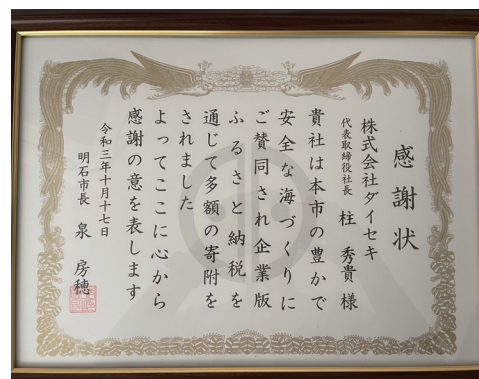 感謝状
株式会社ダイセキ
代表取締役社長 柱 秀貴様
貴社は本市の豊かで
安全な海づくりに
ご賛同され企業版
ふるさと納税を
通じて多額の寄附を
されました
よってここに心から
感謝の意を表します
令和三年十月十七日
明石市長 泉 房穂